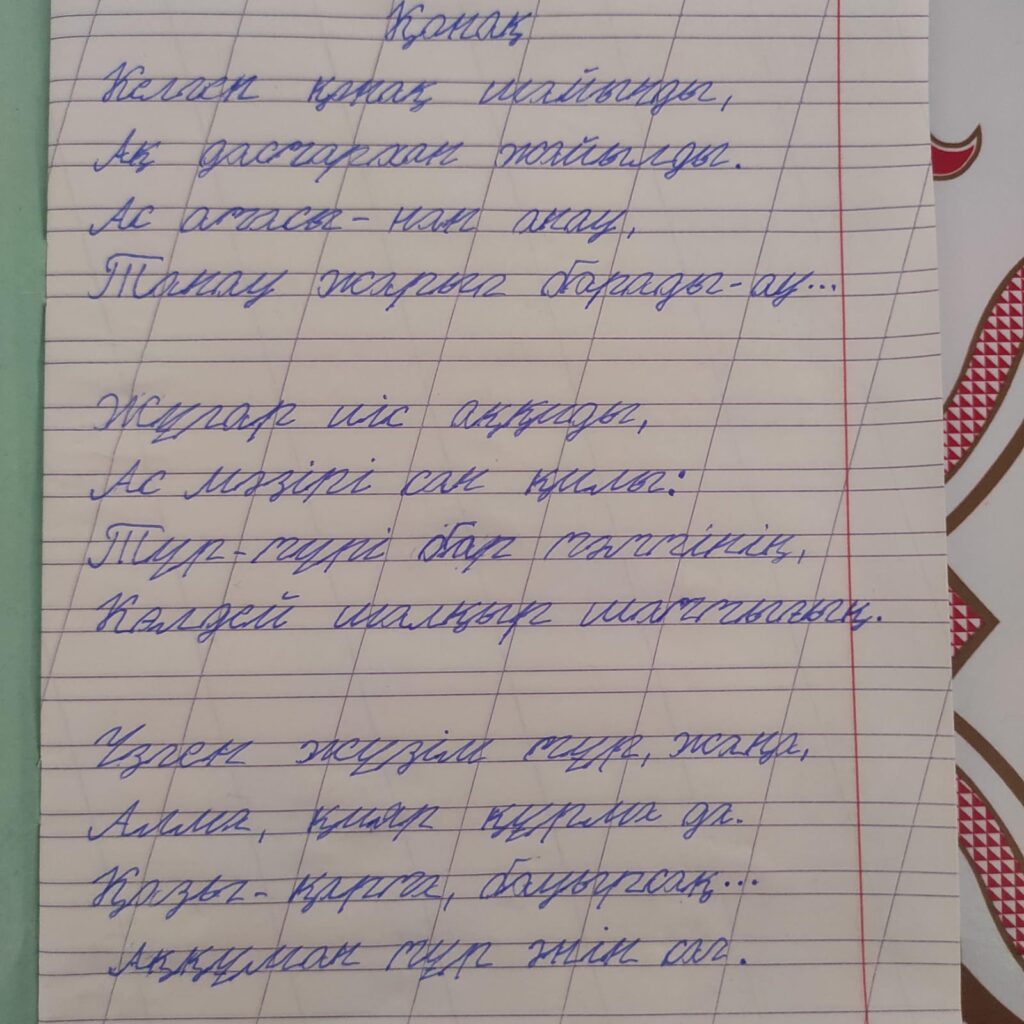 Қонақ
Келген қонақ шайынды,
Ақ дастархан жайылды.
Ас атасы - нан анау,
Танау жарып барады-ау...
Жұпар иіс аңқиды,
Ас мәзірі сан қилы:
Түр-түрі бар тәттінің,
Көлдей шалқыр шаттығың.
Үзген жүзім тұр, жаңа,
Алма, қияр құрма да.
Қазы - қарта, бауырсақ...
Аққұман тұр